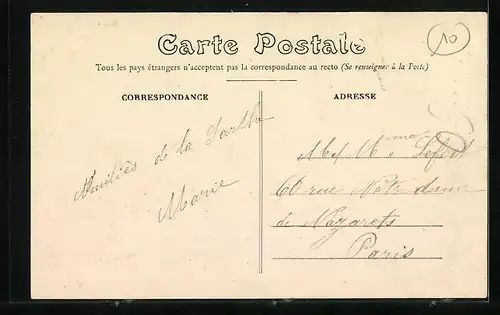 Carte Postale
10
Tous les pays étrangers n'acceptent pas la correspondance au recto (Se renseigner à la Poste)
CORRESPONDANCE
ADRESSE
Amitiés de la Sarthe
Marie
M et Mme Lefort
60 rue Notre dame
de Nazareth
Paris